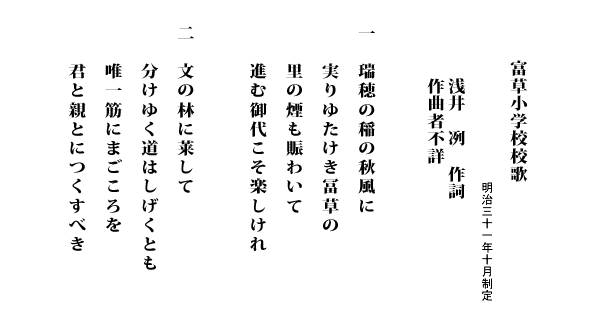 富草小学校校歌
明治三十一年十月制定
浅井 冽 作詞
作曲者不詳
一 瑞穂の稲の秋風に
実りゆたけき冨草の
里の煙も賑わいて
進む御代こそ楽しけれ
二 文の林に菜して
分けゆく道はしげくとも
唯一筋にまごころを
君と親とにつくすべき